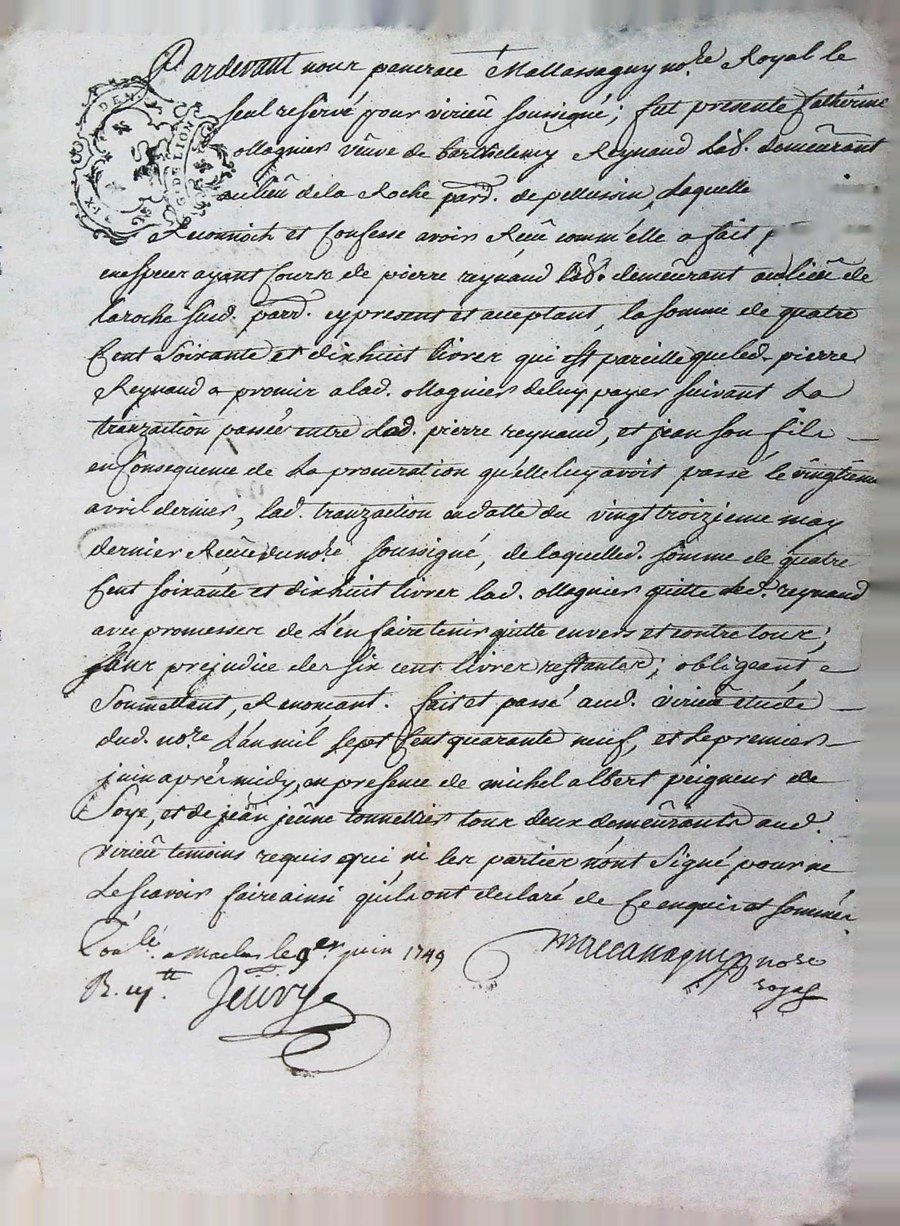 Pardevant nous pancrace Mallassagny no.re Royal le
seul reservé pour virieu soussigné; fut presente Catherine
ollagnier veuve de barthelemy Reynaud lab.r demeurant
au lieu de la Roche parr. de pellussin, Laquelle
Reconnoit et Confesse avoir Receu comm'elle a fait
en especes ayant Cours de pierre reynaud lab.r demeurant au lieu de
laroche susd. parr. cy present et aceptant, la somme de quatre
Cent Soixante et dixhuit livres qui est pareille que led. pierre
Reynaud a promis a lad. ollagnier de luy payer suivant La
tranzaction passée entre Led. pierre reynaud, et jean son fils
en Consequence de La procuration qu'elle luy avoit passé le vingtieme
avril dernier, lad. tranzaction en datte du vingt troizieme may
dernier Receue du no.re soussigné, de laquelle d. somme de quatre
Cent soixante et dixhuit livres lad. ollagnier quitte led. reynaud
avec promesses de L'en faire tenir quitte envers et contre tous;
sans prejudice des six cent livres restantes; obligeant
Soumettant, Renoncant. fait et passé aud. virieu etude
dud. no.re L'an mil sept Cent quarante neuf, et le premier
juin aprés midy, en presence de michel albert peigneur de
Soye, et de jean jeune tonnellier tous deux demeurants aud.
virieu temoins requis qui ni les parties n'ont signé pour ne
Le scavoir faire ainsi qu'ils ont declaré de Ce enquis et sommés
Con.lé a Maclas le 9er juin 1749
Mallassagny no.re
royal
R. tt.
Jeury
DEN.
G. DE LION